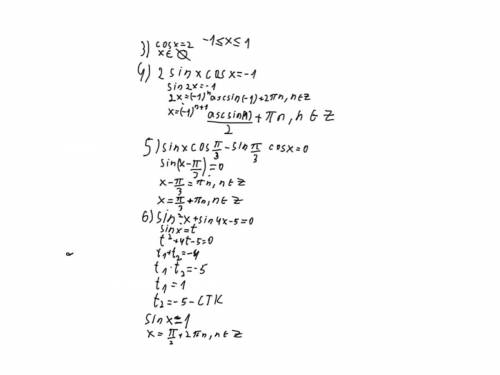 3) cosx=2 -1≤x≤1
x∈ ∅
4) 2 sinx cosx=-1
sin2x=-1
2x=(-1)ⁿ arcsin(-1)+2πn, n∈Z
x=(-1)ⁿ⁺¹ arcsin(1)/2 + πn, n∈Z
5) sinx cos π/3 - sin π/3 cosx=0
sin(x-π/3)=0
x-π/3=πn, n∈Z
x=π/3+πn, n∈Z
6) sin²x+sin4x-5=0
sinx=t
t²+4t-5=0
t₁+t₂=-4
t₁·t₂=-5
t₁=1
t₂=-5-
sinx=1
x=π/2+2πn, n∈Z